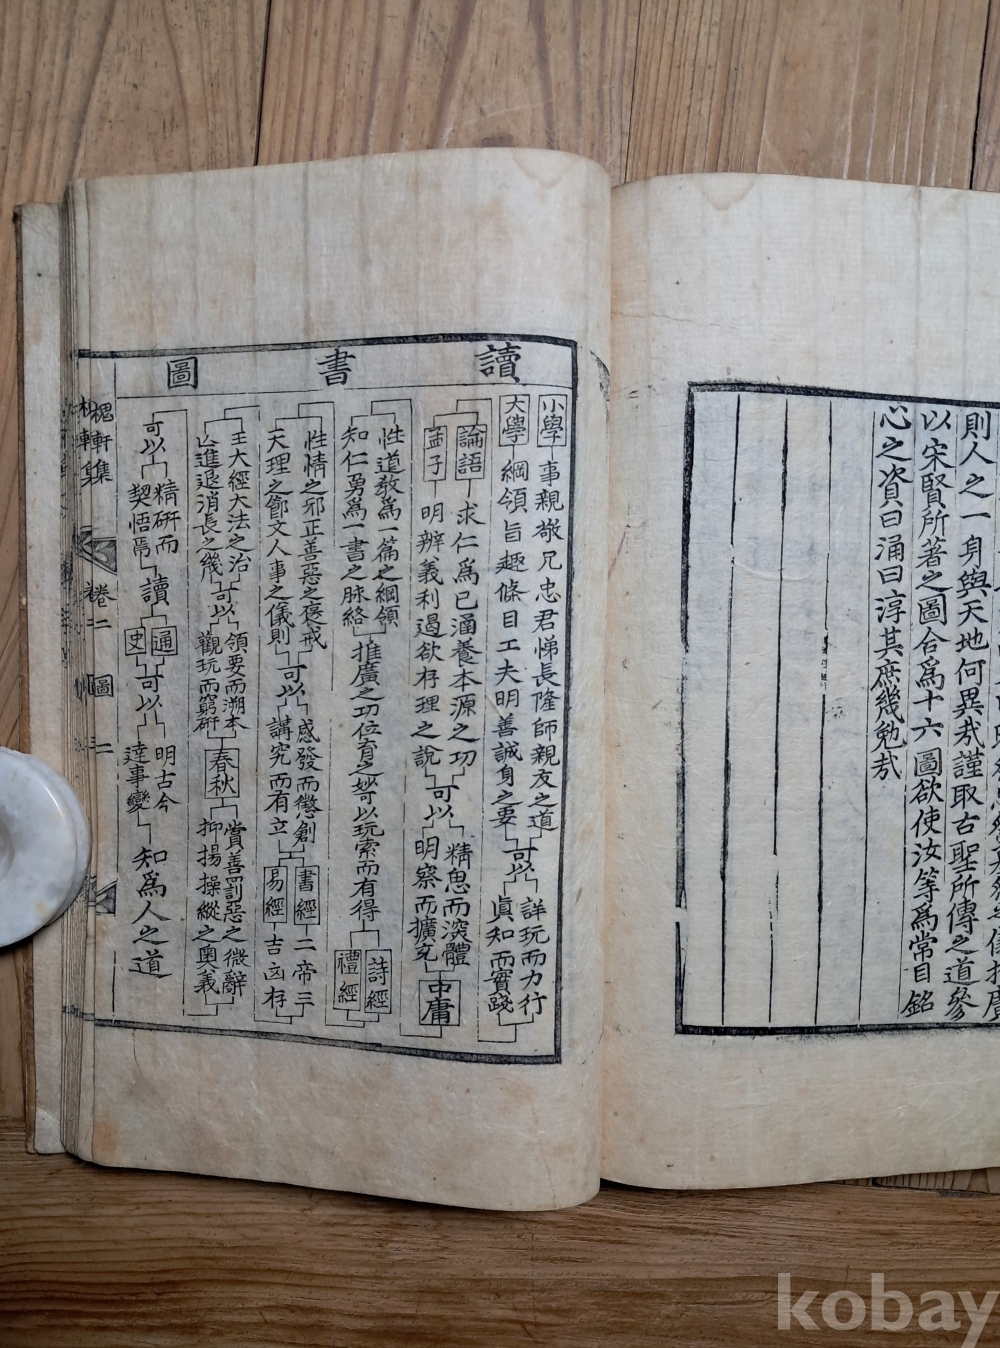 則人之一身與天地何異哉謹取古聖所傳之道參
以宋賢所著之圖合爲十六圖欲使汝等爲常目銘
心之資曰涌曰淳其庶幾勉哉
讀書圖
小學
事親敬兄忠君悌長隆師親友之道
大學
綱領旨趣條目工夫明善誠身之要
可以
詳玩而力行
眞知而實踐
論語
求仁爲己涵養本源之功
孟子
明辨義利遏欲存理之說
可以
精思而深體
明察而擴充
中庸
性道敎爲一篇之綱領
知仁勇爲一書之脉絡
推廣之功位育之妙可以玩索而有得
詩經
禮經
性情之邪正善惡之褒戒
天理之節文人事之儀則
可以
感發而懲創
講究而有立
書經
二帝三
易經
吉凶存
王大經大法之治
亡進退消長之幾
可以
領要而溯本
觀玩而窮硏
春秋
賞善罰惡之微辭
抑揚操縱之奧義
可以
精硏而
契悟焉
讀
通
史
可以
明古今
達事變
知爲人之道
槐軒集
卷二
圖
二
kobay